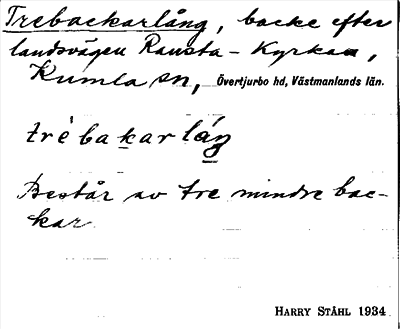 Trebackarlång, backe efter
landsvägen Ransta - Kyrkan,
Kumla sn, Övertjurbo hd, Västmanlands län.
trèbakarláŋ
Består av tre mindre bac-
kar.
HARRY STÅHL 1934